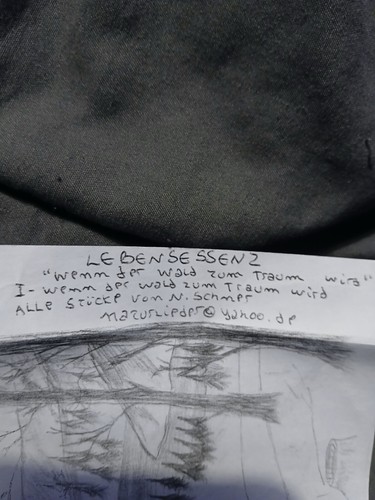 LEBENSESSENZ
"wenn der wald zum Traum wird"
I- wenn der wald zum Traum wird
ALLE Stücke von N. Schmer
mazurlieder@yahoo.de